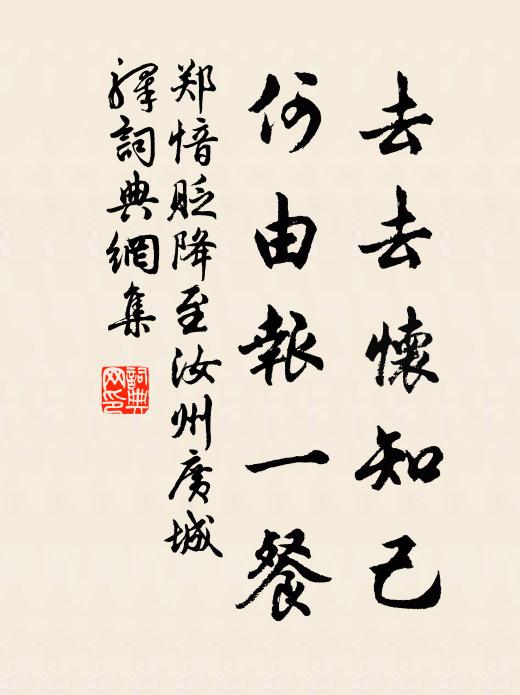 去去懷知己
何由報一餐
郑愔貶降至汝州廣城
驛詞典網集
詞典
网印